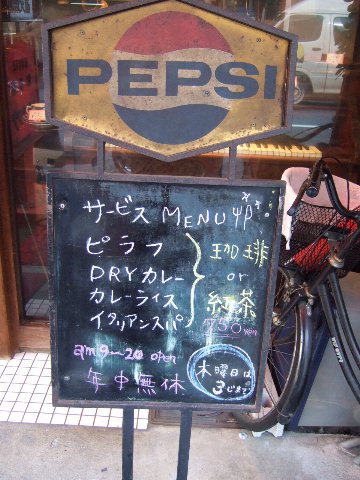 PEPSI
サービス MENU
ピラフ
DRYカレー
カレーライス
イタリアンスパ
珈琲
or
紅茶
750 YEN
am 9〜20 open
年中無休
木曜日は
3じまで